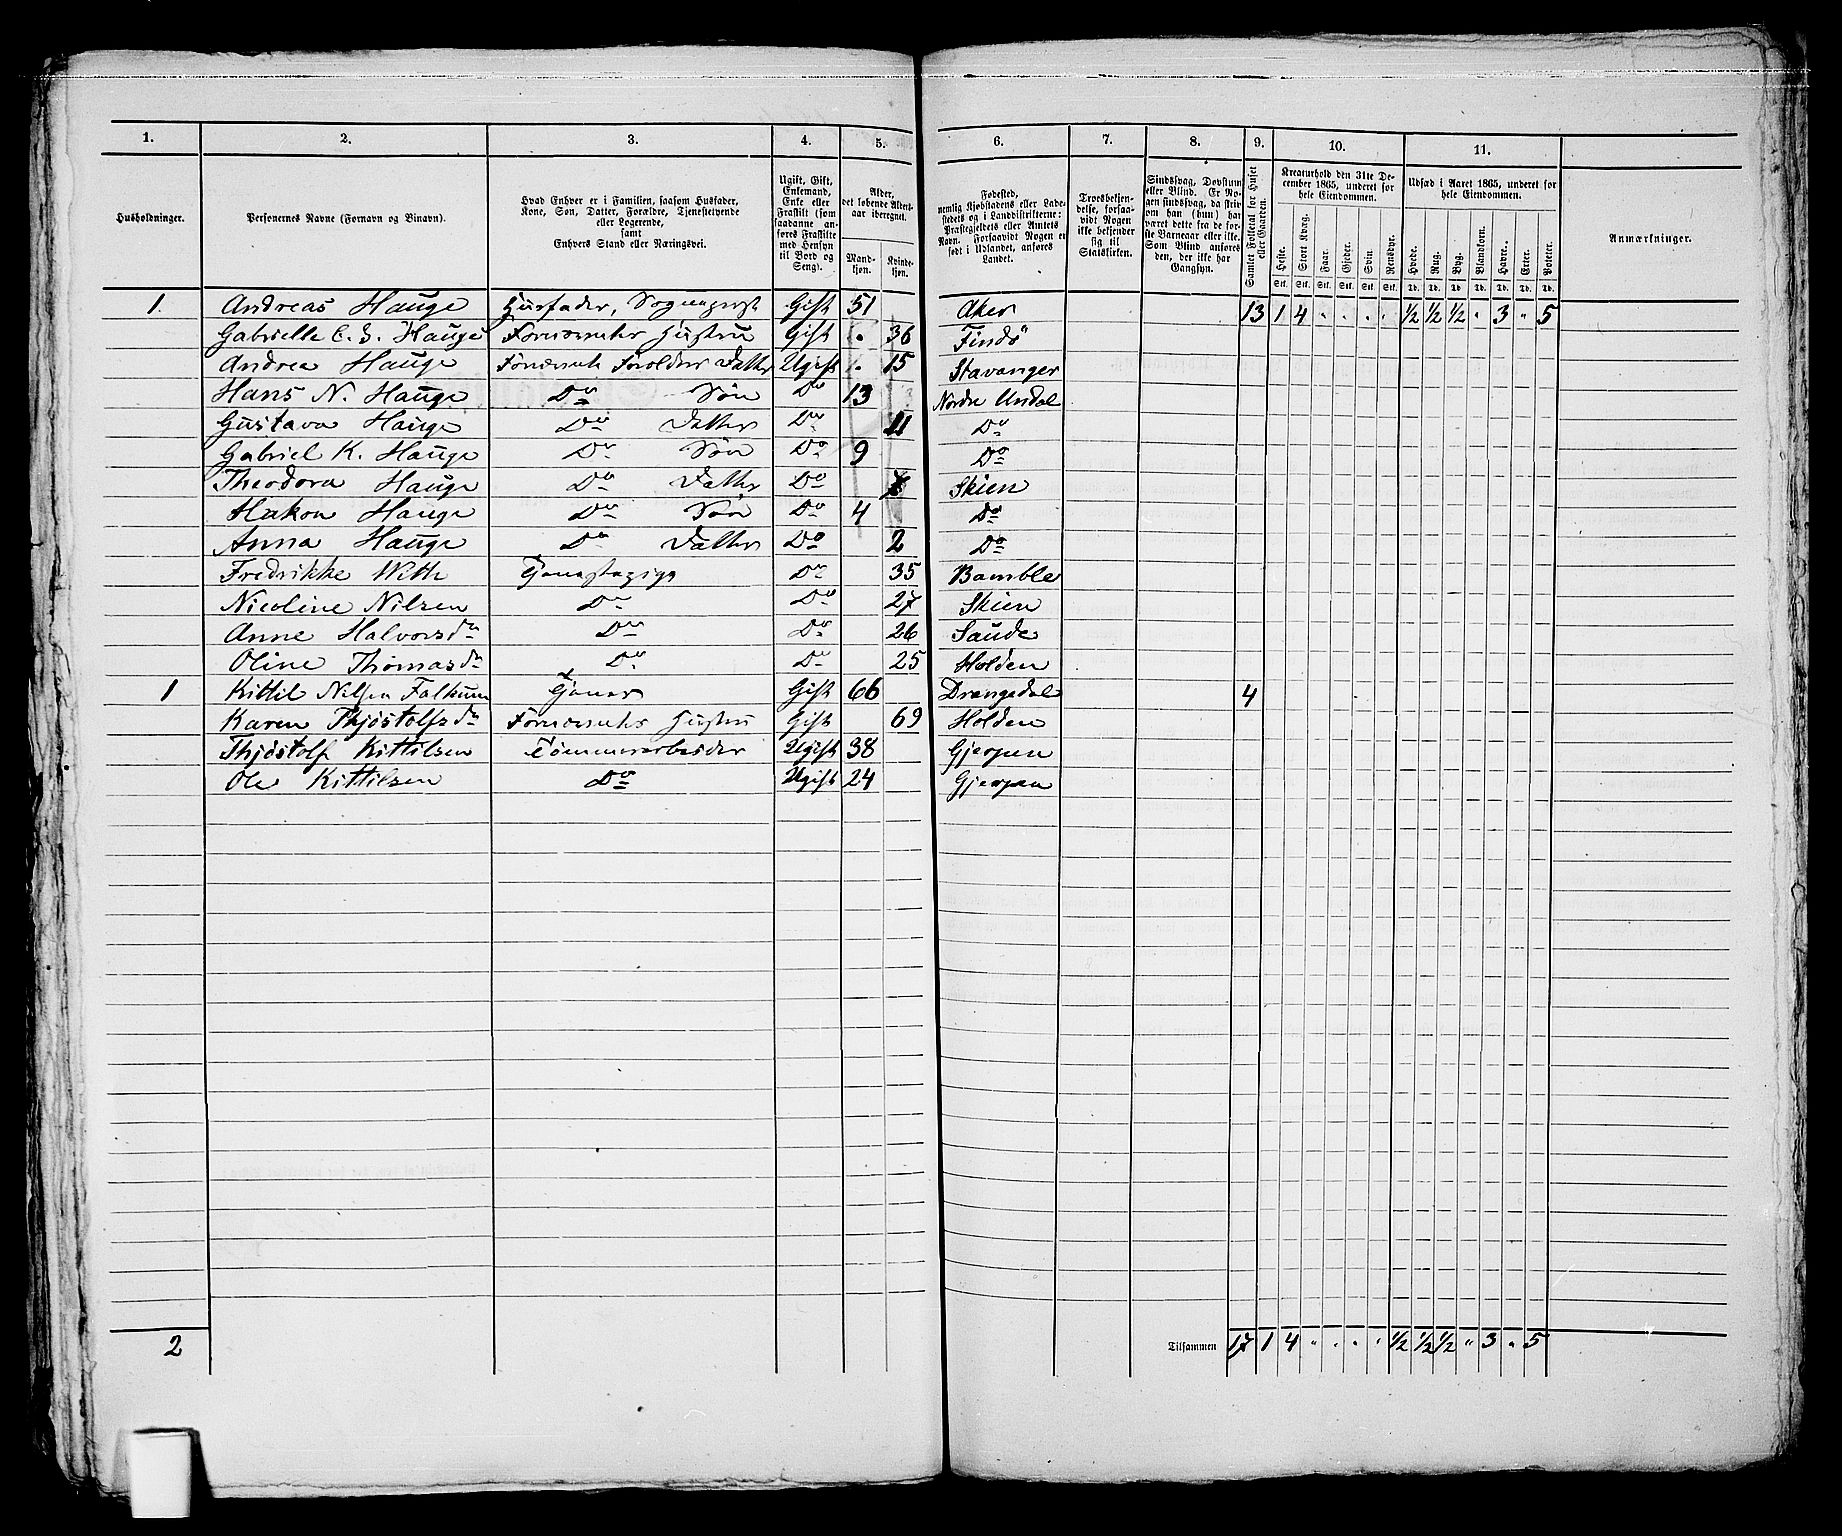 1. 2. 3. 4. 5. 6. 7. 8. 9. 10. 11.
Husholdninger.
Personernes Navne (Fornavn og Binavn).
Hvad Enhver er i Familien, saasom Husfader,
Kone, Søn, Datter, Forældre, Tjenestetyende
eller Logerende,
samt
Enhvers Stand eller Næringsvei.
Ugift, Gift,
Enkemand,
Enke eller
Fraskilt (som
saadanne an-
føres Fraskilte
med Hensyn
til Bord og
Seng).
Alder,
det løbende Alders-
aar iberegnet.
Mand-
kjøn.
Kvinde-
kjøn.
Fødested,
nemlig Kjøbstadens eller Lade-
stedets og i Landdistrikterne:
Præstegjeldets eller Amtets
Navn. Forsaavidt Nogen er
født i Udlandet, anføres
Landet.
Troesbekjen-
delse, forsaa-
vidt Nogen
ikke bekjender
sig til
Statskirken.
Sindssvag, Døvstum
eller Blind. Er No-
gen sindssvag, da skriv
om han (hun) har
været dette fra de før-
ste Barneaar eller ikke.
Som Blind anføres
den, der ikke har
Gangsyn.
Samlet Folketal for Huset
eller Gaarden.
Kreaturhold den 31te De-
cember 1865, underet for
hele Eiendommen.
Heste. Stort Kvæg. Faar. Gjeder. Svin. Rensdyr.
Stk. Stk. Stk. Stk. Stk. Stk. Stk.
Udsæd i Aaret 1865, underet for
hele Eiendommen.
Hvede. Rug. Byg. Blandkorn. Havre. Erter. Poteter.
Td. Td. Td. Td. Td. Td. Td.
Anmærkninger.
1. Andreas Hauge Husfader, Sognepræst Gift 51 Aker 13 1 4 . . . . ½ ½ ½ " 3 " 5
Gabrielle Hauge Førnævntes Hustru Gift . 36 Findö
Andrea Hauge Førnævnte Forældres Datter Ugift . 15 Stavanger
Hans N. Hauge Do Søn Do 13 Nordre Undal
Gustava Hauge Do Datter Do 11 Do
Gabriel K. Hauge Do Søn Do 9 Do
Theodora Hauge Do Datter Do Skien
Hakon Hauge Do Søn Do 4 Do
Anna Hauge Do Datter Do 2 Do
Fredrikke With Tjenestepige Do 35 Bamble
Nicoline Nilsen Do Do 27 Skien
Anne Halvorsdn Do Do 26 Saude
Oline Thomasdn Do Do 25 Holden
1 Kittil Nilsen Falkum Gift 66 Drangedal 4
Karen Thjöstolfsdn Førnævntes Hustru Gift 69 Holden
Thjöstolf Kittilsen Tömmerarbeider Ugift 38 Gjerpen
Ole Kittilsen Do Ugift 24 Gjerpen
2 Tilsammen 17 1 4 " . . . ½ ½ ½ " 3 " 5